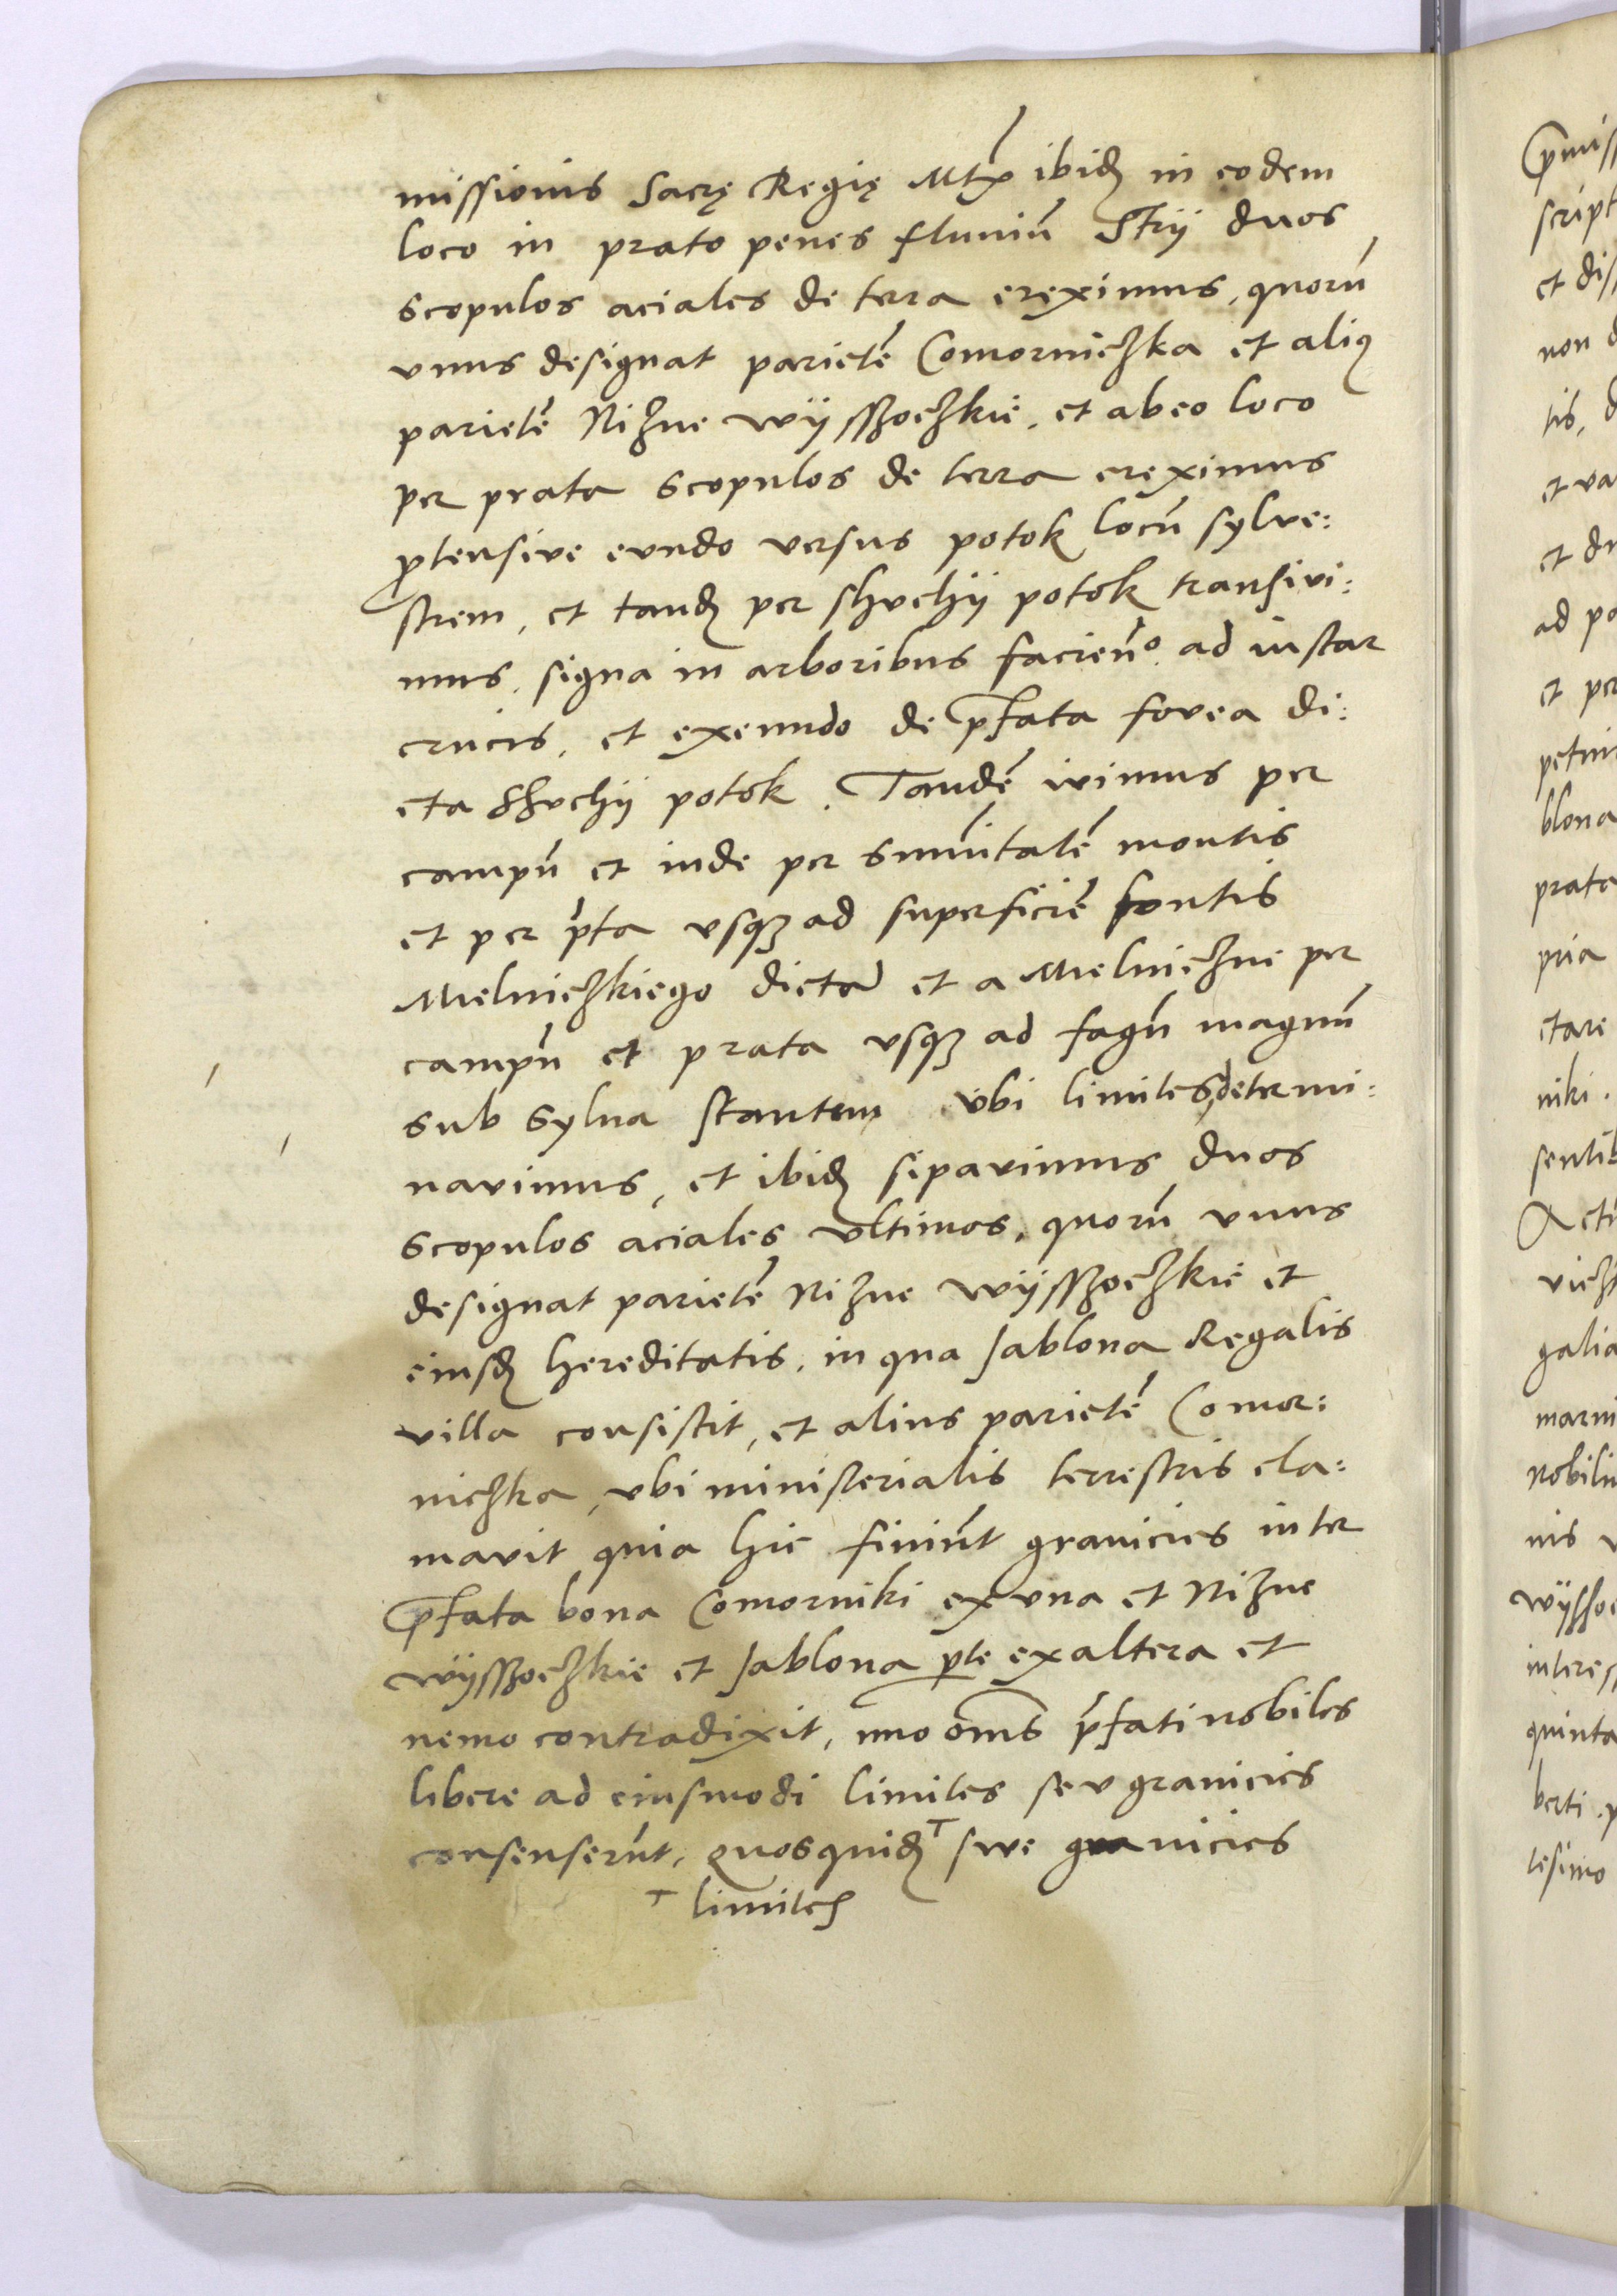 missionis Sacrę Regię Mtis ibid in eodem
loco in prato penes fluuiũ Strÿ duos
scopulos aciales de terra ereximus, quorũ
vnus designat parietẽ Comorniczka et aliꝰ
parietẽ Nizne wÿsszoczkie, et ab eo loco
per prata scopulos de terra ereximus
ꝓtensive eundo versus potok locũ sylue:
strem, et tand per shuchÿ potok transiui:
mus, signa in arboribus facienᵒ ad instar
crucis, et exeundo de p̄fata fovea di:
cta Shuchÿ potok. Tandẽ iuimus per
campũ et inde per summitatẽ montis
et per p̄ta vsqꝫ ad superficiẽ fontis
Mielniczkiego dicta et a Mielniczne per
campũ et prata vsqꝫ ad fagũ magnũ
sub sylua stantem vbi limites determi:
navimus, et ibid sipavimus duos
scopulos aciales vltimos, quorũ vnus
designat parietẽ Nizne wÿsszoczkie et
eiusd hereditatis, in qua Jablona Regalis
villa consistit, et alius parietẽ Comor:
niczka, vbi ministerialis terrestris cla:
mavit quia hic finiũt granicies inter
p̄fata bona Comorniki ex vna et Nizne
wÿsszoczkie et Jablona ꝑte ex altera et
nemo contradixit, imo om̃s p̄fati nobiles
libere ad eiusmodi limites seu granicies
consenserũt, quos quid ⸆ siue granicies
⸆ limites
Actũ